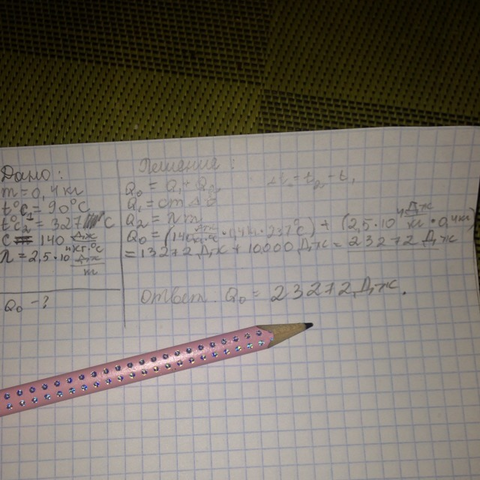 Дано:
m = 0,4 кг
t°C₁ = 90°C
t°C₂ = 327°C
C = 140 Дж/кг·°C
λ = 2,5·10⁴ Дж/кг
Q₀ - ?
Решение:
Q₀ = Q₁ + Q₂ Δt = t₂ - t₁
Q₁ = cmΔt
Q₂ = λm
Q₀ = (140 · 0,4кг · 237°C) + (2,5·10⁴ Дж/кг · 0,4кг)
= 13272 Дж + 10000 Дж = 23272 Дж
Ответ: Q₀ = 23272 Дж.